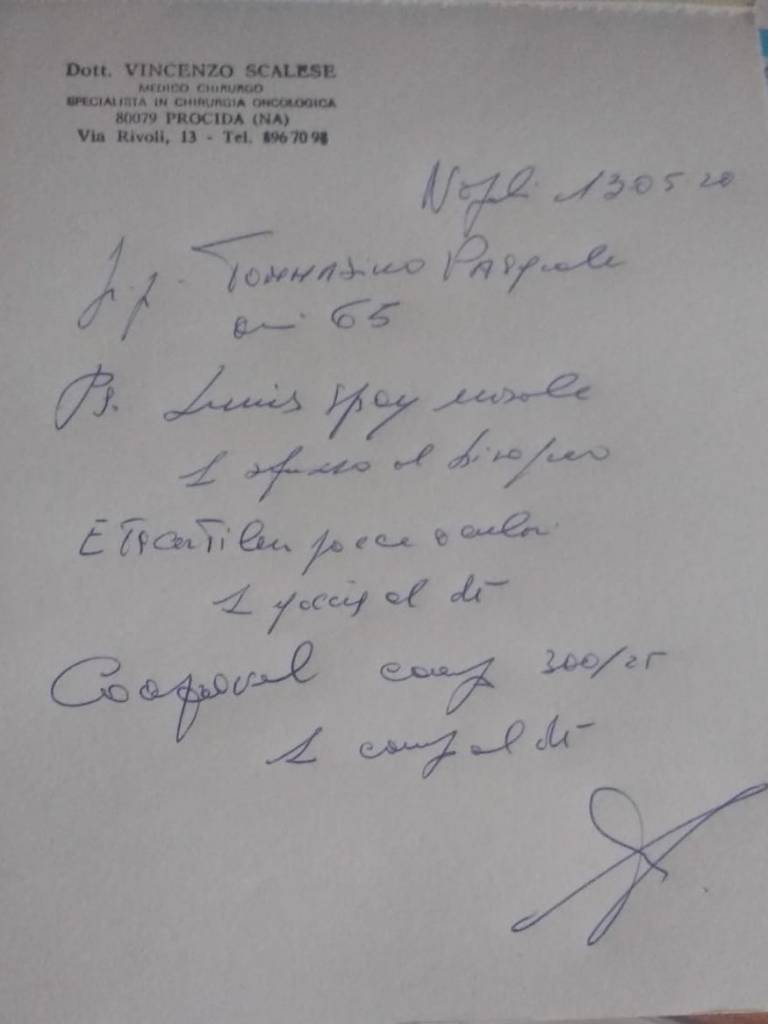 Dott. VINCENZO SCALESE
MEDICO CHIRURGO
SPECIALISTA IN CHIRURGIA ONCOLOGICA
80079 PROCIDA (NA)
Via Rivoli, 13 - Tel. 896 70 98
Napoli 13 05 20
Tommasino Pasquale
anni 65
Ps. spray nasale
1 al bisogno
gocce oculari
1 goccia al dì
Coaprovel comp 300/25
1 comp al dì